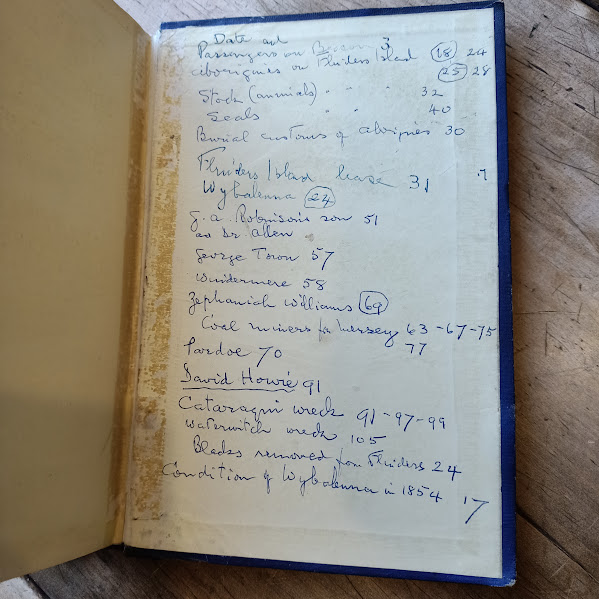 Date and
Passengers on Beacon 3
aborigines on Flinders Island (18) 24
(25) 28
Stock (animals) " " " 32
Seals " " 40
Burial customs of aborigines 30
Flinders Island lease 31 7
Wybalenna (24)
G. A. Robinson's son 51
as Dr. Allen
George Town 57
Windermere 58
Zephaniah Williams (69)
Coal miners for Mersey 63-67-75
Pardoe 70 77
David Howie 91
Cataraqui wreck 91-97-99
Waterwitch wreck 105
Blacks removed from Flinders 24
Condition of Wybalenna in 1854 17